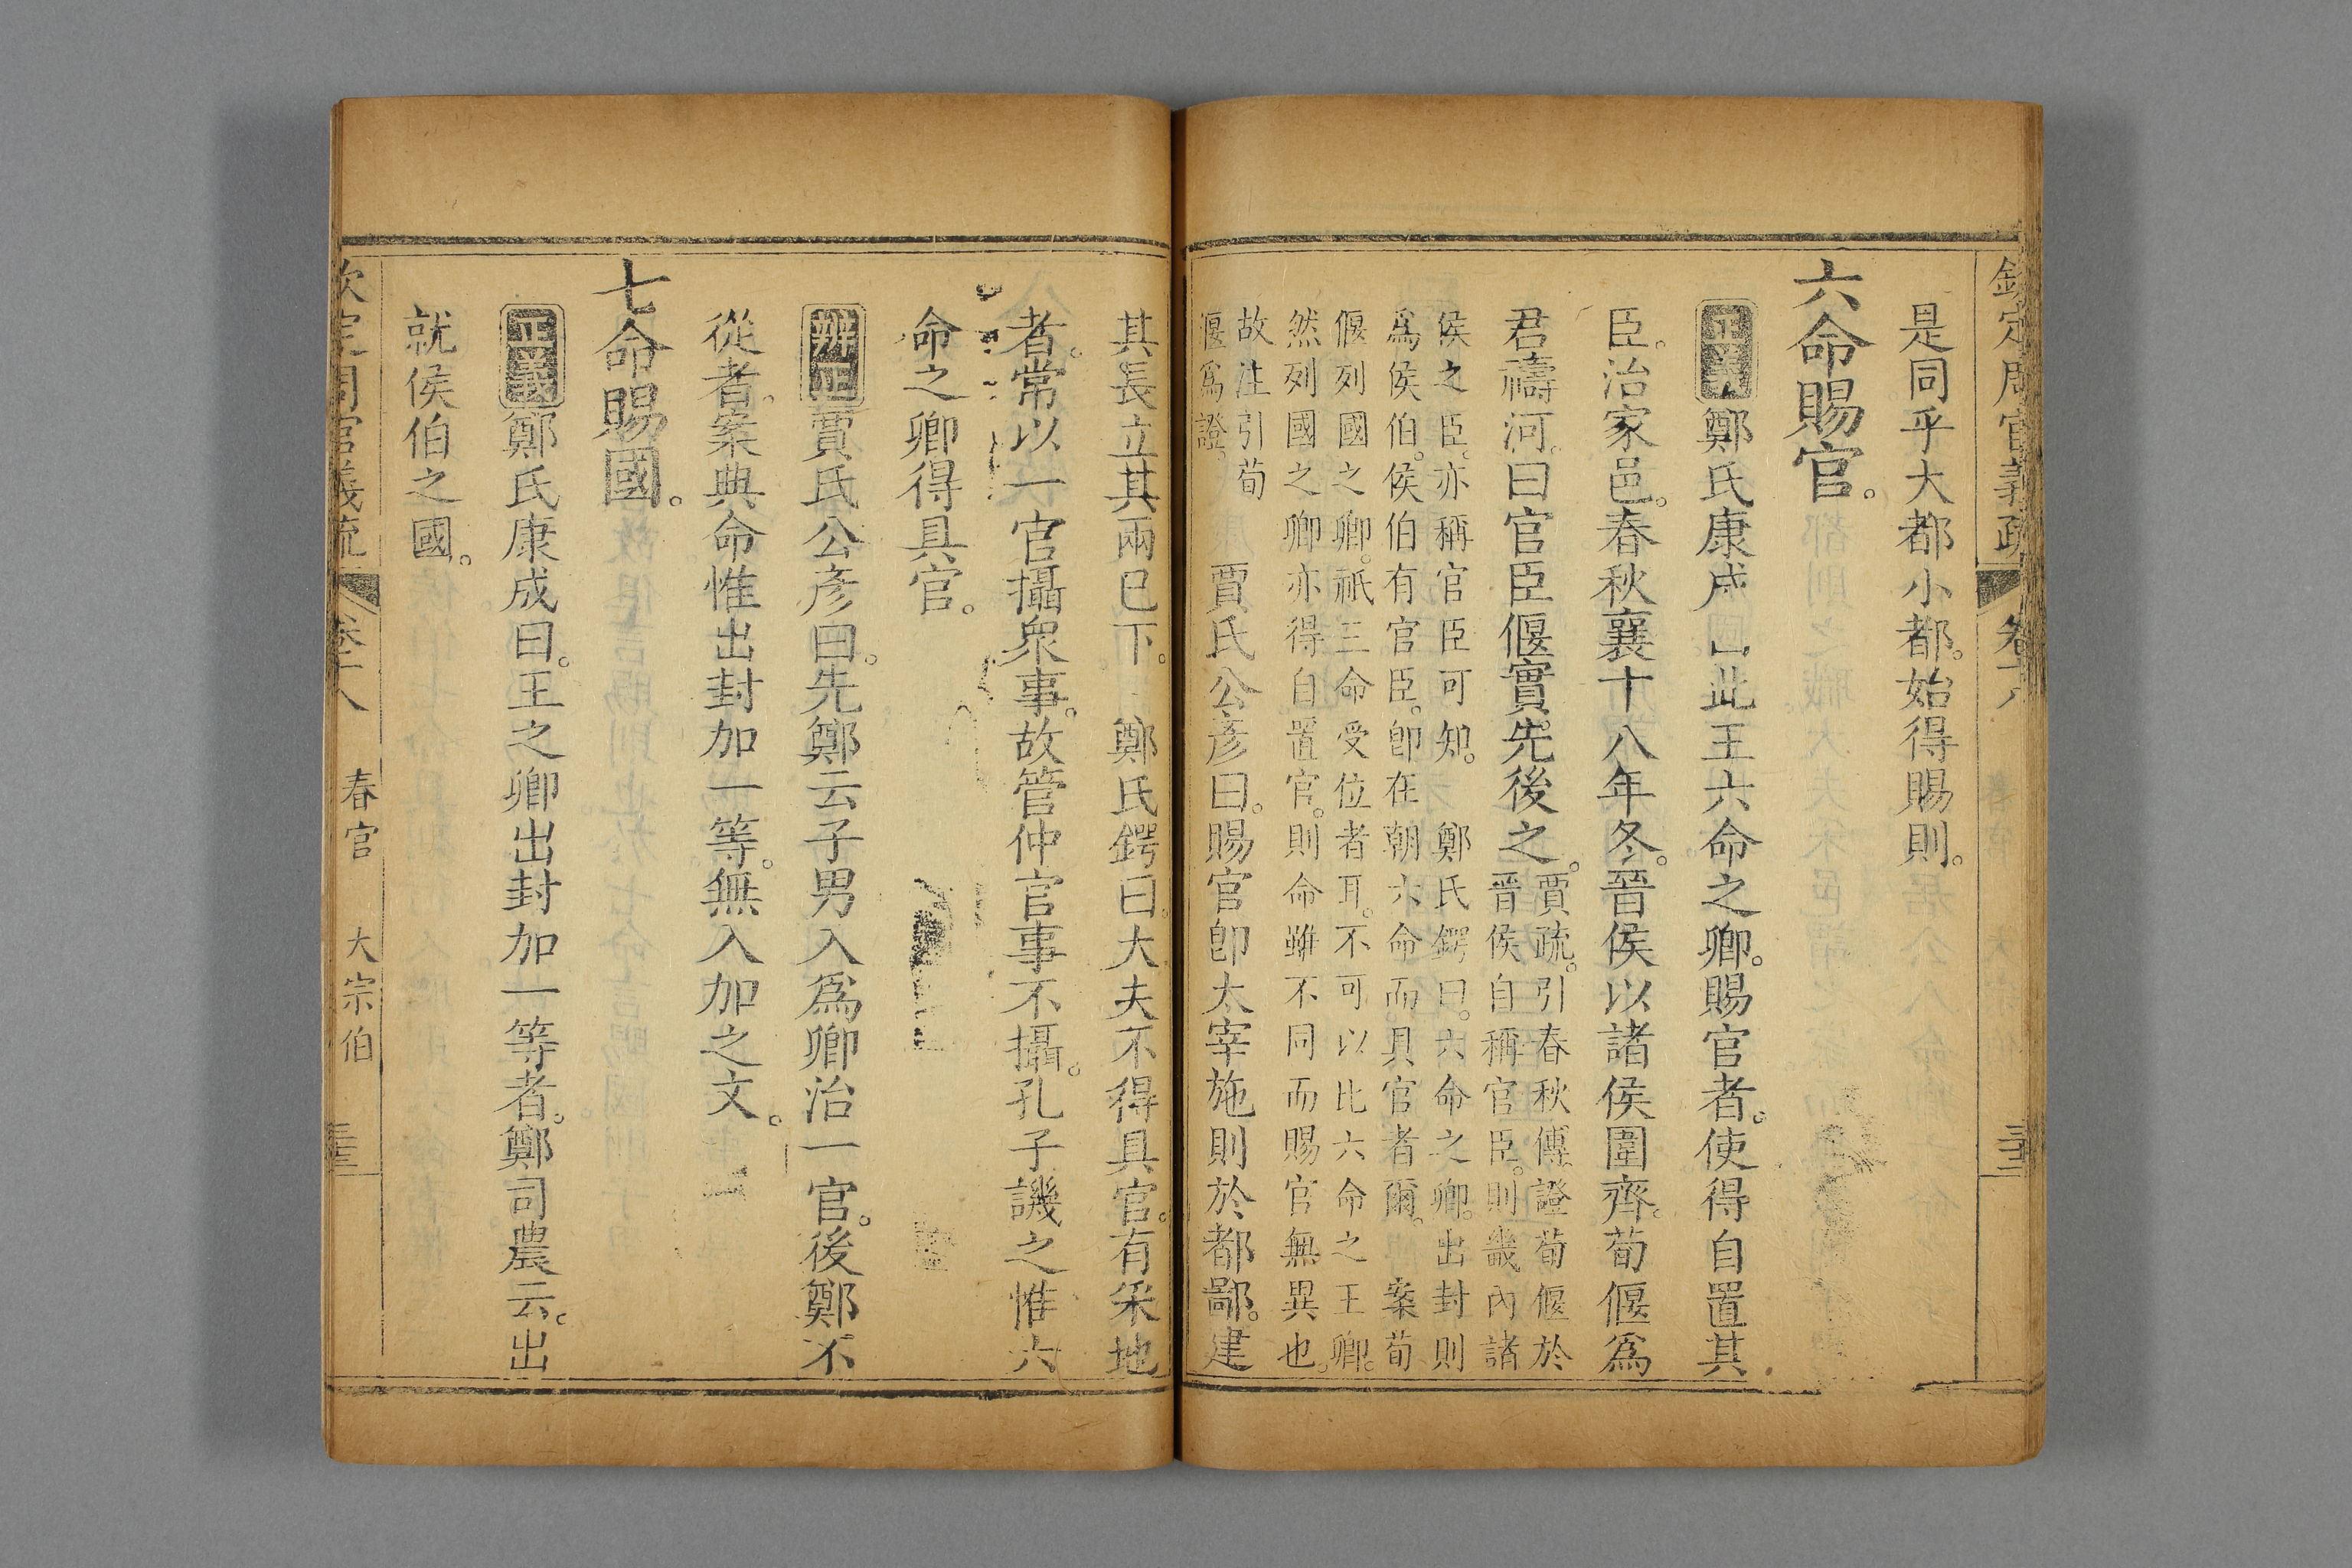 欽定周官義疏 卷十八
是同乎大都小都。始得賜則。
六命賜官。
正義 鄭氏康成曰此王六命之卿。賜官者。使得自置其
臣。治家邑。春秋襄十八年冬。晉侯以諸侯圍齊。荀偃爲
君禱河。曰官臣偃實先後之。
賈疏。引春秋傳證荀偃於
晉侯自稱官臣。則畿內諸
侯之臣。亦稱官臣可知。 鄭氏鍔曰。六命之卿。出封則
爲侯伯。侯伯有官臣。卽在朝六命而具官者爾。 案荀
偃列國之卿。祇三命受位者耳。不可以比六命之王卿。
然列國之卿亦得自置官。則命雖不同而賜官無異也。
故注引荀
偃爲證。
賈氏公彥曰。賜官卽太宰施則於都鄙。建
其長立其兩已下。 鄭氏鍔曰。大夫不得具官。有采地
者。常以一官攝衆事。故管仲官事不攝。孔子譏之惟六
命之卿得具官。
辨正 賈氏公彥曰。先鄭云子男入爲卿治一官。後鄭不
從者。案典命惟出封加一等。無入加之文。
七命賜國。
正義 鄭氏康成曰。王之卿出封加一等者。鄭司農云。出
就侯伯之國。
欽定周官義疏 卷十八 春官 大宗伯